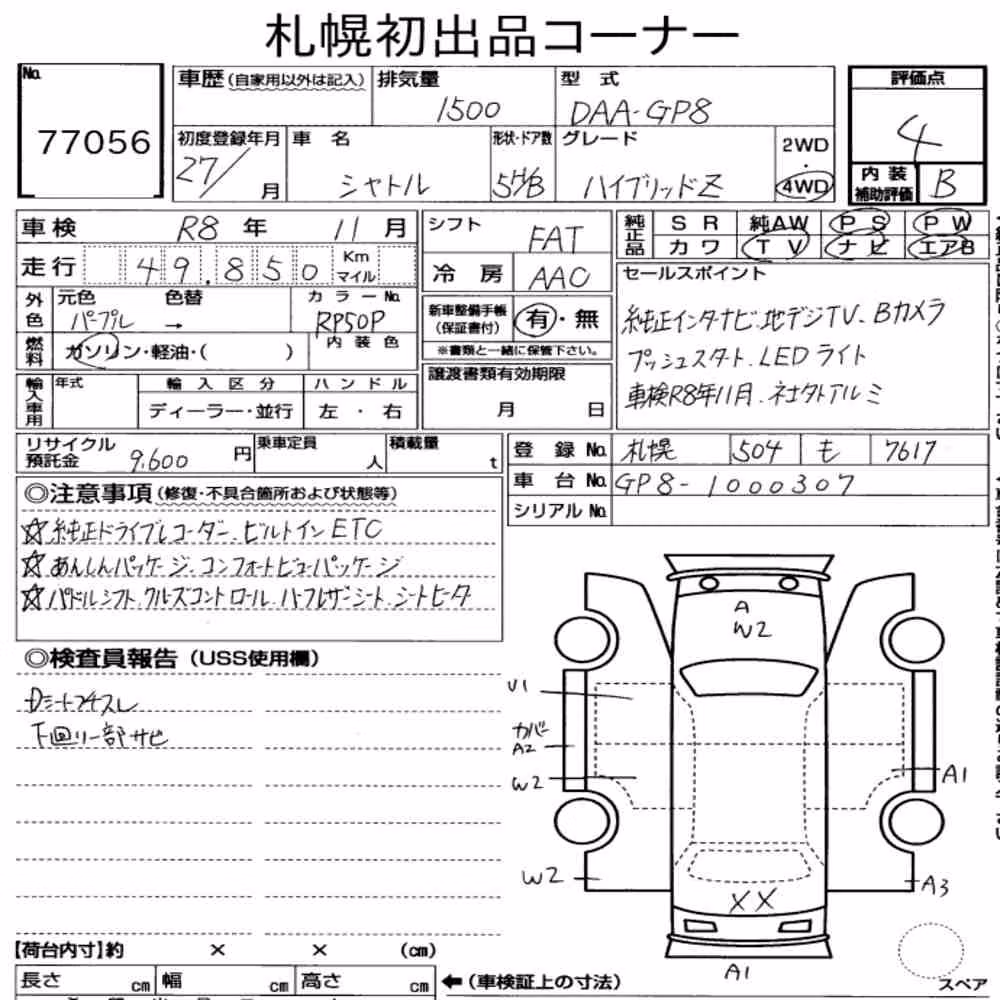 札幌初出品コーナー
No. 77056
車歴(自家用以外は記入) 排気量 1500 型式 DAA-GP8
初度登録年月 27/ 月 車名 シャトル 形状・ドア数 5H/B グレード ハイブリッドZ 2WD・4WD
評価点 4
内装補助評価 B
車検 R8年 11月
走行 49.850 Km マイル
シフト FAT
冷房 AAC
純正品 SR 純AW PS PW
カワ TV ナビ エアB
外色 元色 パープル → 色替 カラーNo. RP50P
燃料 ガソリン・軽油・( ) 内装色
新車整備手帳(保証書付) 有・無
※書類と一緒に保管下さい。
セールスポイント
純正インタナビ.地デジTV.Bカメラ
プッシュスタート.LEDライト
車検R8年11月.社外アルミ
輸入車用 年式 輸入区分 ハンドル
ディーラー・並行 左・右
譲渡書類有効期限
月 日
リサイクル預託金 9.600円 乗車定員 人 積載量 t
登録No. 札幌 504 も 7617
車台No. GP8-1000307
シリアルNo.
◎注意事項(修復・不具合箇所および状態等)
☆純正ドライブレコーダー.ビルトインETC
☆あんしんパッケージ.コンフォートビューパッケージ
☆パドルシフト.クルーズコントロール.ハーフレザーシート.シートヒータ
◎検査員報告(USS使用欄)
Dシートコゲスレ
下回り一部サビ
A
W2
U1
カバー
A2
W2
A1
W2
A3
XX
A1
【荷台内寸】約 × × (cm)
長さ cm 幅 cm 高さ cm ←(車検証上の寸法)
スペア